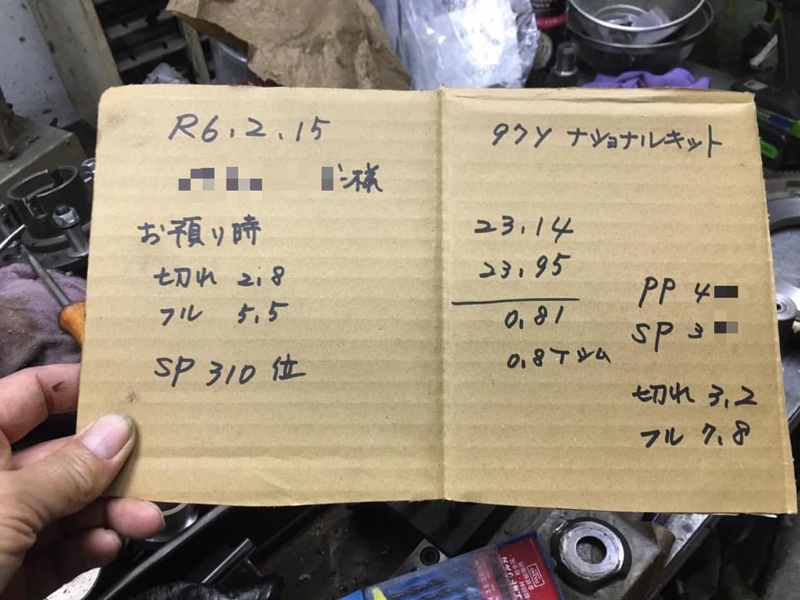 R6.2.15
様
お預り時
切れ 2.8
フル 5.5
SP 310位
97Y ナショナルキット
23.14
23.95
0.81
0.8Tシム
PP 4
SP 3
切れ 3.2
フル 7.8